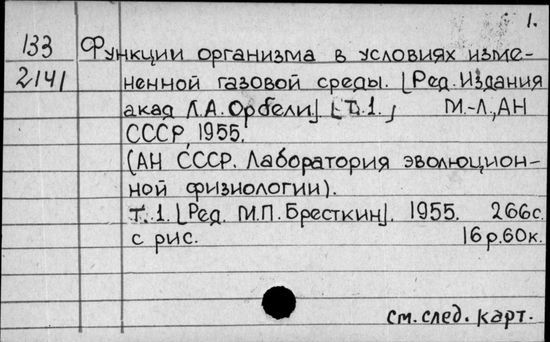 1.
133 Функции организма в условиях изме-
2141 ненной газовой среды. [Ред. Издания
акад Л.А. Орбели] [Т. 1.] М.-Л., АН
СССР, 1955.
(АН СССР. Лаборатория эволюцион-
ной физиологии).
Т. 1. [Ред. М.П. Бресткин]. 1955. 266с.
с рис. 16р.60к.
см. след. карт.